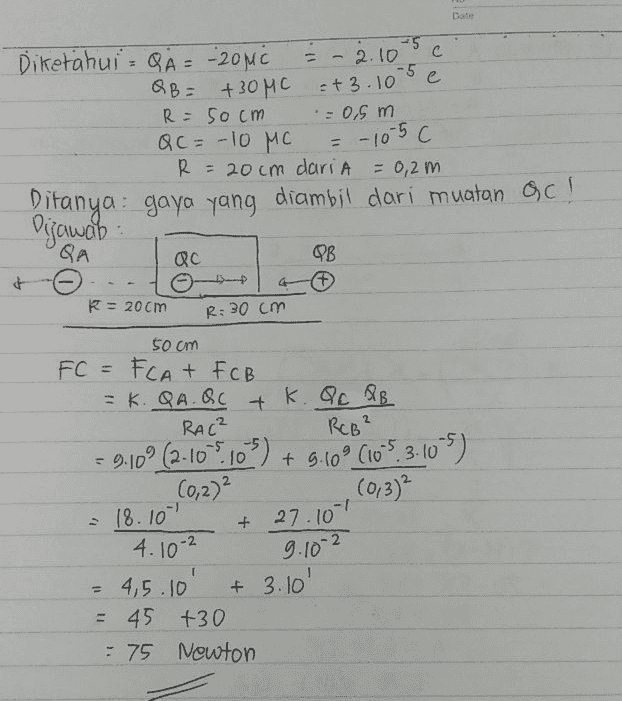 Date
Diketahui = QA = -20 μC = - 2.10⁻⁵ C
QB = +30 μC = +3.10⁻⁵ C
R = 50 cm = 0,5 m
QC = -10 μC = -10⁻⁵ C
R = 20 cm dari A = 0,2 m
Ditanya : gaya yang diambil dari muatan QC!
Dijawab :
QA QC QB
− − +
R = 20 cm R = 30 cm
50 cm
FC = FCA + FCB
= K. QA.QC / RAC² + K. QC QB / RCB²
= 9.10⁹ (2.10⁻⁵.10⁻⁵) / (0,2)² + 9.10⁹ (10⁻⁵.3.10⁻⁵) / (0,3)²
= 18.10⁻¹ / 4.10⁻² + 27.10⁻¹ / 9.10⁻²
= 4,5.10¹ + 3.10¹
= 45 +30
= 75 Newton